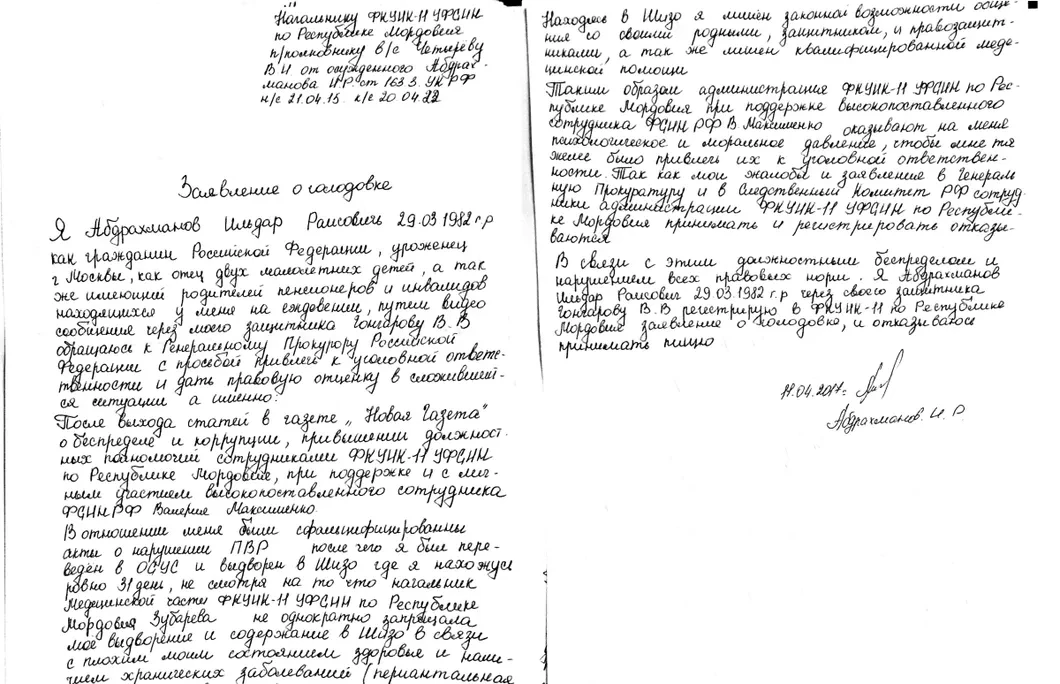 Начальнику ФКУИК-11 УФСИН
по Республике Мордовия
п/полковнику в/с Четыреву
В И от осужденного Абдрах-
манова И.Р. ст 163 3. УК РФ
н/с 21.04.15. к/с 20.04.22
Заявление о голодовке
Я Абдрахманов Ильдар Раисович 29.03 1982 г.р
как гражданин Российской Федерации, уроженец
г Москвы, как отец двух малолетних детей, а так
же имеющий родителей пенсионеров и инвалидов
находящихся у меня на еждевении, путем видео
сообщения через моего защитника Гончарову В.В
обращаюсь к Генеральному Прокурору Российской
Федерации с просьбой привлечь к уголовной ответс-
твенности и дать правовую отценку в сложившей-
ся ситуации а именно:
После выхода статей в газете „Новая Газета"
о беспределе и коррупции, привышении должност-
ных полномочий сотрудниками ФКУИК-11 УФСИН
по Республике Мордовия, при поддержке и с лич-
ным участием высокопоставленного сотрудника
ФСИН РФ Валерия Максименко
В отношении меня были сфальцифицированны
акты о нарушении ПВР после чего я был пере-
веден в ОСУС и выдворен в Шизо где я нахожусь
ровно 31 день, не смотря на то что начальник
Медецинской части ФКУИК-11 УФСИН по Республике
Мордовия Зубарева не однократно запрещала
моё выдворение и содержание в Шизо в связи
с плохим моим состоянием здоровья и нали-
чием хранических заболеваний (периантальная
Находясь в Шизо я лишен законной возможности обще-
ния со своими родными, защитником, и правозащит-
никами, а так же лишен квалифицированной меде-
цинской помощи
Таким образом администрация ФКУИК-11 УФСИН по Рес-
публике Мордовия при поддержке высокопоставленного
сотрудника ФСИН РФ В. Максименко оказывают на меня
психологическое и моральное давление, чтобы мне тя
желее было привлечь их к уголовной ответствен-
ности. Так как мои жалобы и заявления в Генераль
ную Прокуратуру и в Следственный Комитет РФ сотруд-
ники администрации ФКУИК-11 УФСИН по Республи-
ке Мордовия принимать и регистрировать отказы-
ваются
В связи с этим должностным беспределом и
нарушением всех правовых норм. Я Абдрахманов
Ильдар Раисович 29.03.1982 г.р через своего защитника
Гончарову В.В регистрирую в ФКУИК-11 по Республике
Мордовия заявление о голодовке, и отказываюсь
принимать пищю
11.04.2017г
Абдрахманов. И. Р.